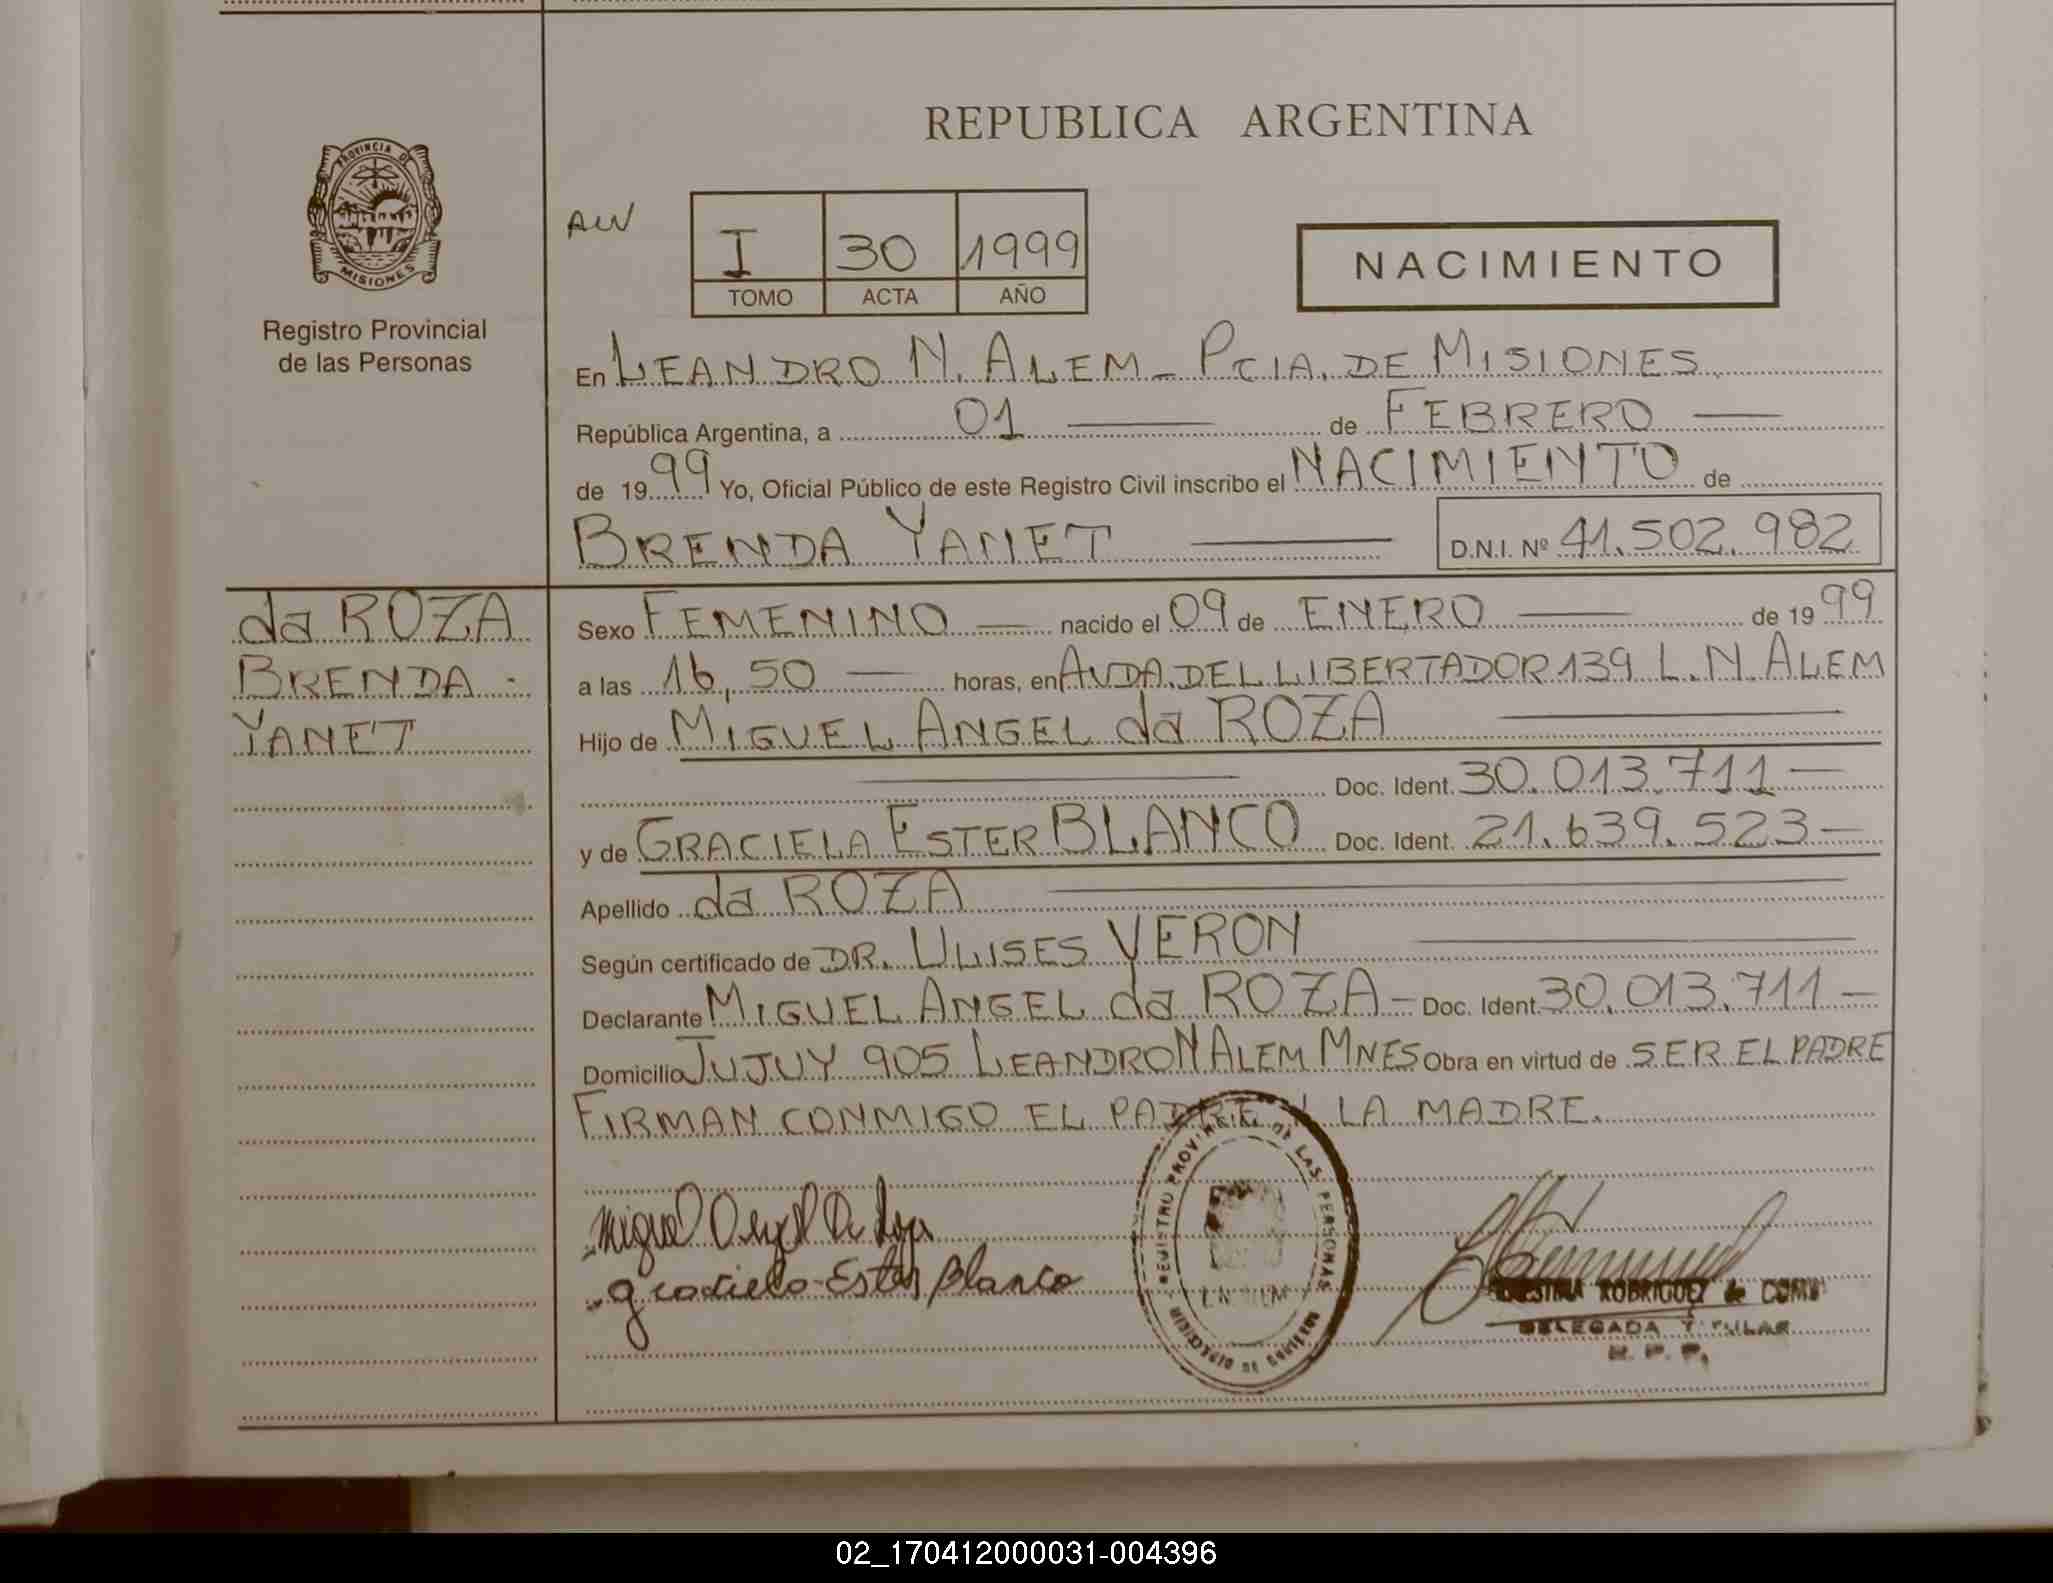 REPUBLICA ARGENTINA
PROVINCIA DE
MISIONES
Registro Provincial
de las Personas
I 30 1999
TOMO ACTA AÑO
NACIMIENTO
En LEANDRO N. ALEM - PCIA. DE MISIONES
República Argentina, a 01 de FEBRERO
de 1999 Yo, Oficial Público de este Registro Civil inscribo el NACIMIENTO de
BRENDA YANET D.N.I. Nº 41.502.982
da ROZA
BRENDA
YANET
Sexo FEMENINO nacido el 09 de ENERO de 1999
a las 16,50 horas, en AVDA. DEL LIBERTADOR 139 L.N. ALEM
Hijo de MIGUEL ANGEL da ROZA
Doc. Ident. 30.013.711
y de GRACIELA ESTER BLANCO Doc. Ident. 21.639.523
Apellido da ROZA
Según certificado de DR. ULISES VERON
Declarante MIGUEL ANGEL da ROZA - Doc. Ident. 30.013.711
Domicilio JUJUY 905 LEANDRO N ALEM MNES Obra en virtud de SER EL PADRE
FIRMAN CONMIGO EL PADRE Y LA MADRE.
REGISTRO PROVINCIAL DE LAS PERSONAS
L.N. ALEM
Miguel Angel Da Roza
Graciela Ester Blanco
RODRIGUEZ de
DELEGADA TITULAR
R. P. P.
02_170412000031-004396